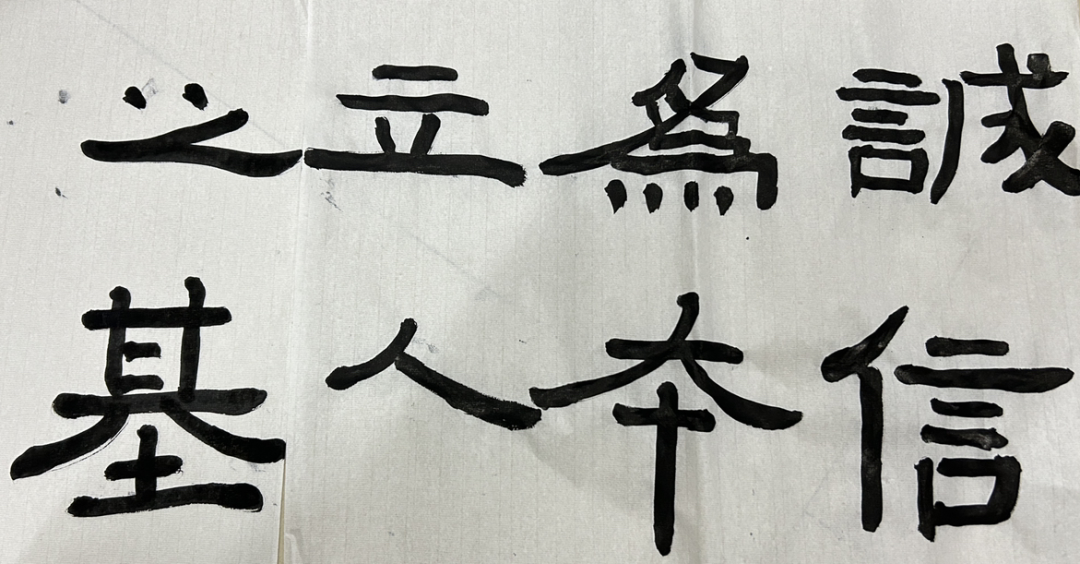 誠信
為本
立人
之基